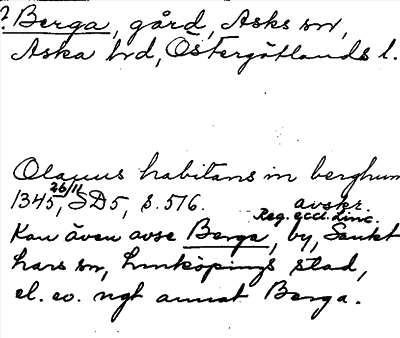 ? Berga, gård, Asks sn,
Aska hd, Östergötlands l.
Olauus habitans in berghum
1345 26/11, SD5, s. 516. avskr.
Reg. eccl. Linc.
Kan även avse Berga, by, Sankt
Lars sn, Linköpings stad,
el. ev. ngt annat Berga.